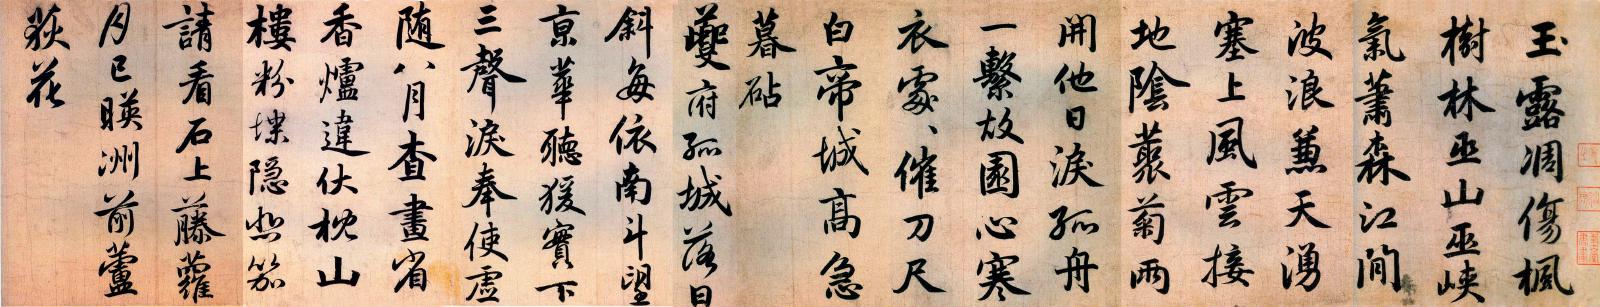 玉露凋傷楓
樹林巫山巫峽
氣蕭森江間
波浪兼天湧
塞上風雲接
地陰叢菊兩
開他日淚孤舟
一繫故園心寒
衣處々催刀尺
白帝城高急
暮砧
夔府孤城落日
斜每依南斗望
京華聽猨實下
三聲淚奉使虛
随八月查畫省
香爐違伏枕山
樓粉堞隐悲笳
請看石上藤蘿
月已暎洲前蘆
荻花